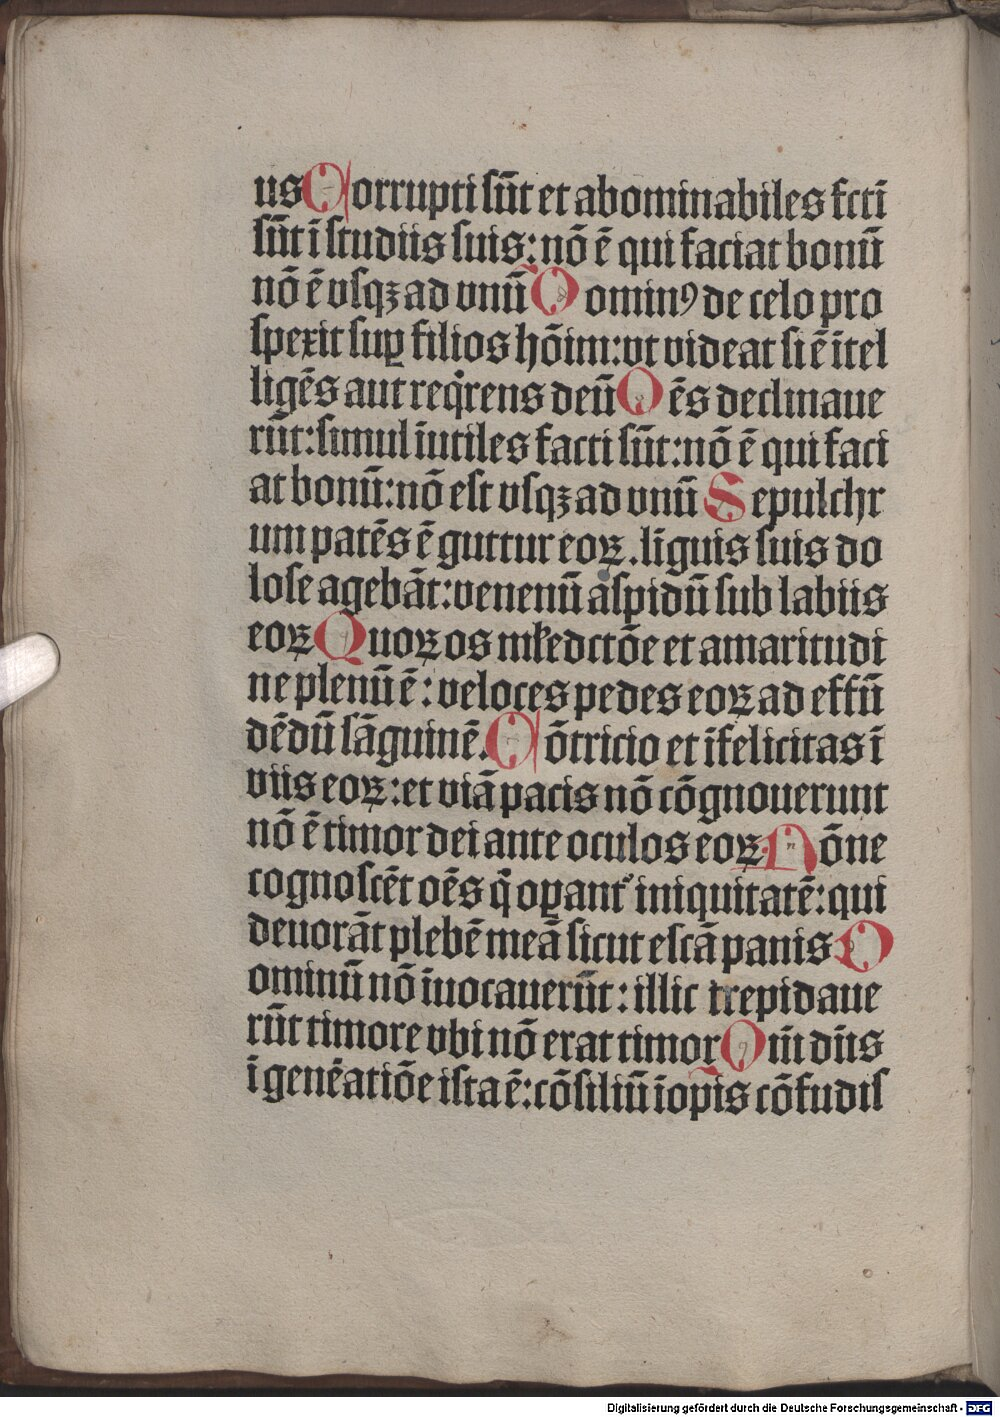 us Corrupti sūt et abominabiles fcti
sūt ī studiis suis: nō ē qui faciat bonū
nō ē vsqꝫ ad vnū Dominꝰ de celo pro
spexit suꝑ filios hōim: vt videat si ē ītel
ligēs aut reqͥrens deū Oēs declinaue
rūt: simul īutiles facti sūt: nō ē qui faci
at bonū: nō est vsqꝫ ad vnū Sepulchr
um patēs ē guttur eoꝝ. linguis suis do
lose agebāt: venenū aspidū sub labiis
eoꝝ Quoꝝ os młedctōe et amaritudi
ne plenū ē: veloces pedes eoꝝ ad effū
dēdū sāguinē. Cōtricio et īfelicitas ī
viis eoꝝ: et viā pacis nō cōgnouerunt
nō ē timor dei ante oculos eoꝝ Nōne
cognoscēt oēs q̄ oꝑantᷣ iniquitatē: qui
deuorāt plebē meā sicut escā panis D
ominū nō īuocauerūt: illic trepidaue
rūt timore vbi nō erat timor Qm̄ dn̄s
ī genēatiōe ista ē: cōsiliū īopis cōfudis
Digitalisierung gefördert durch die Deutsche Forschungsgemeinschaft - DFG